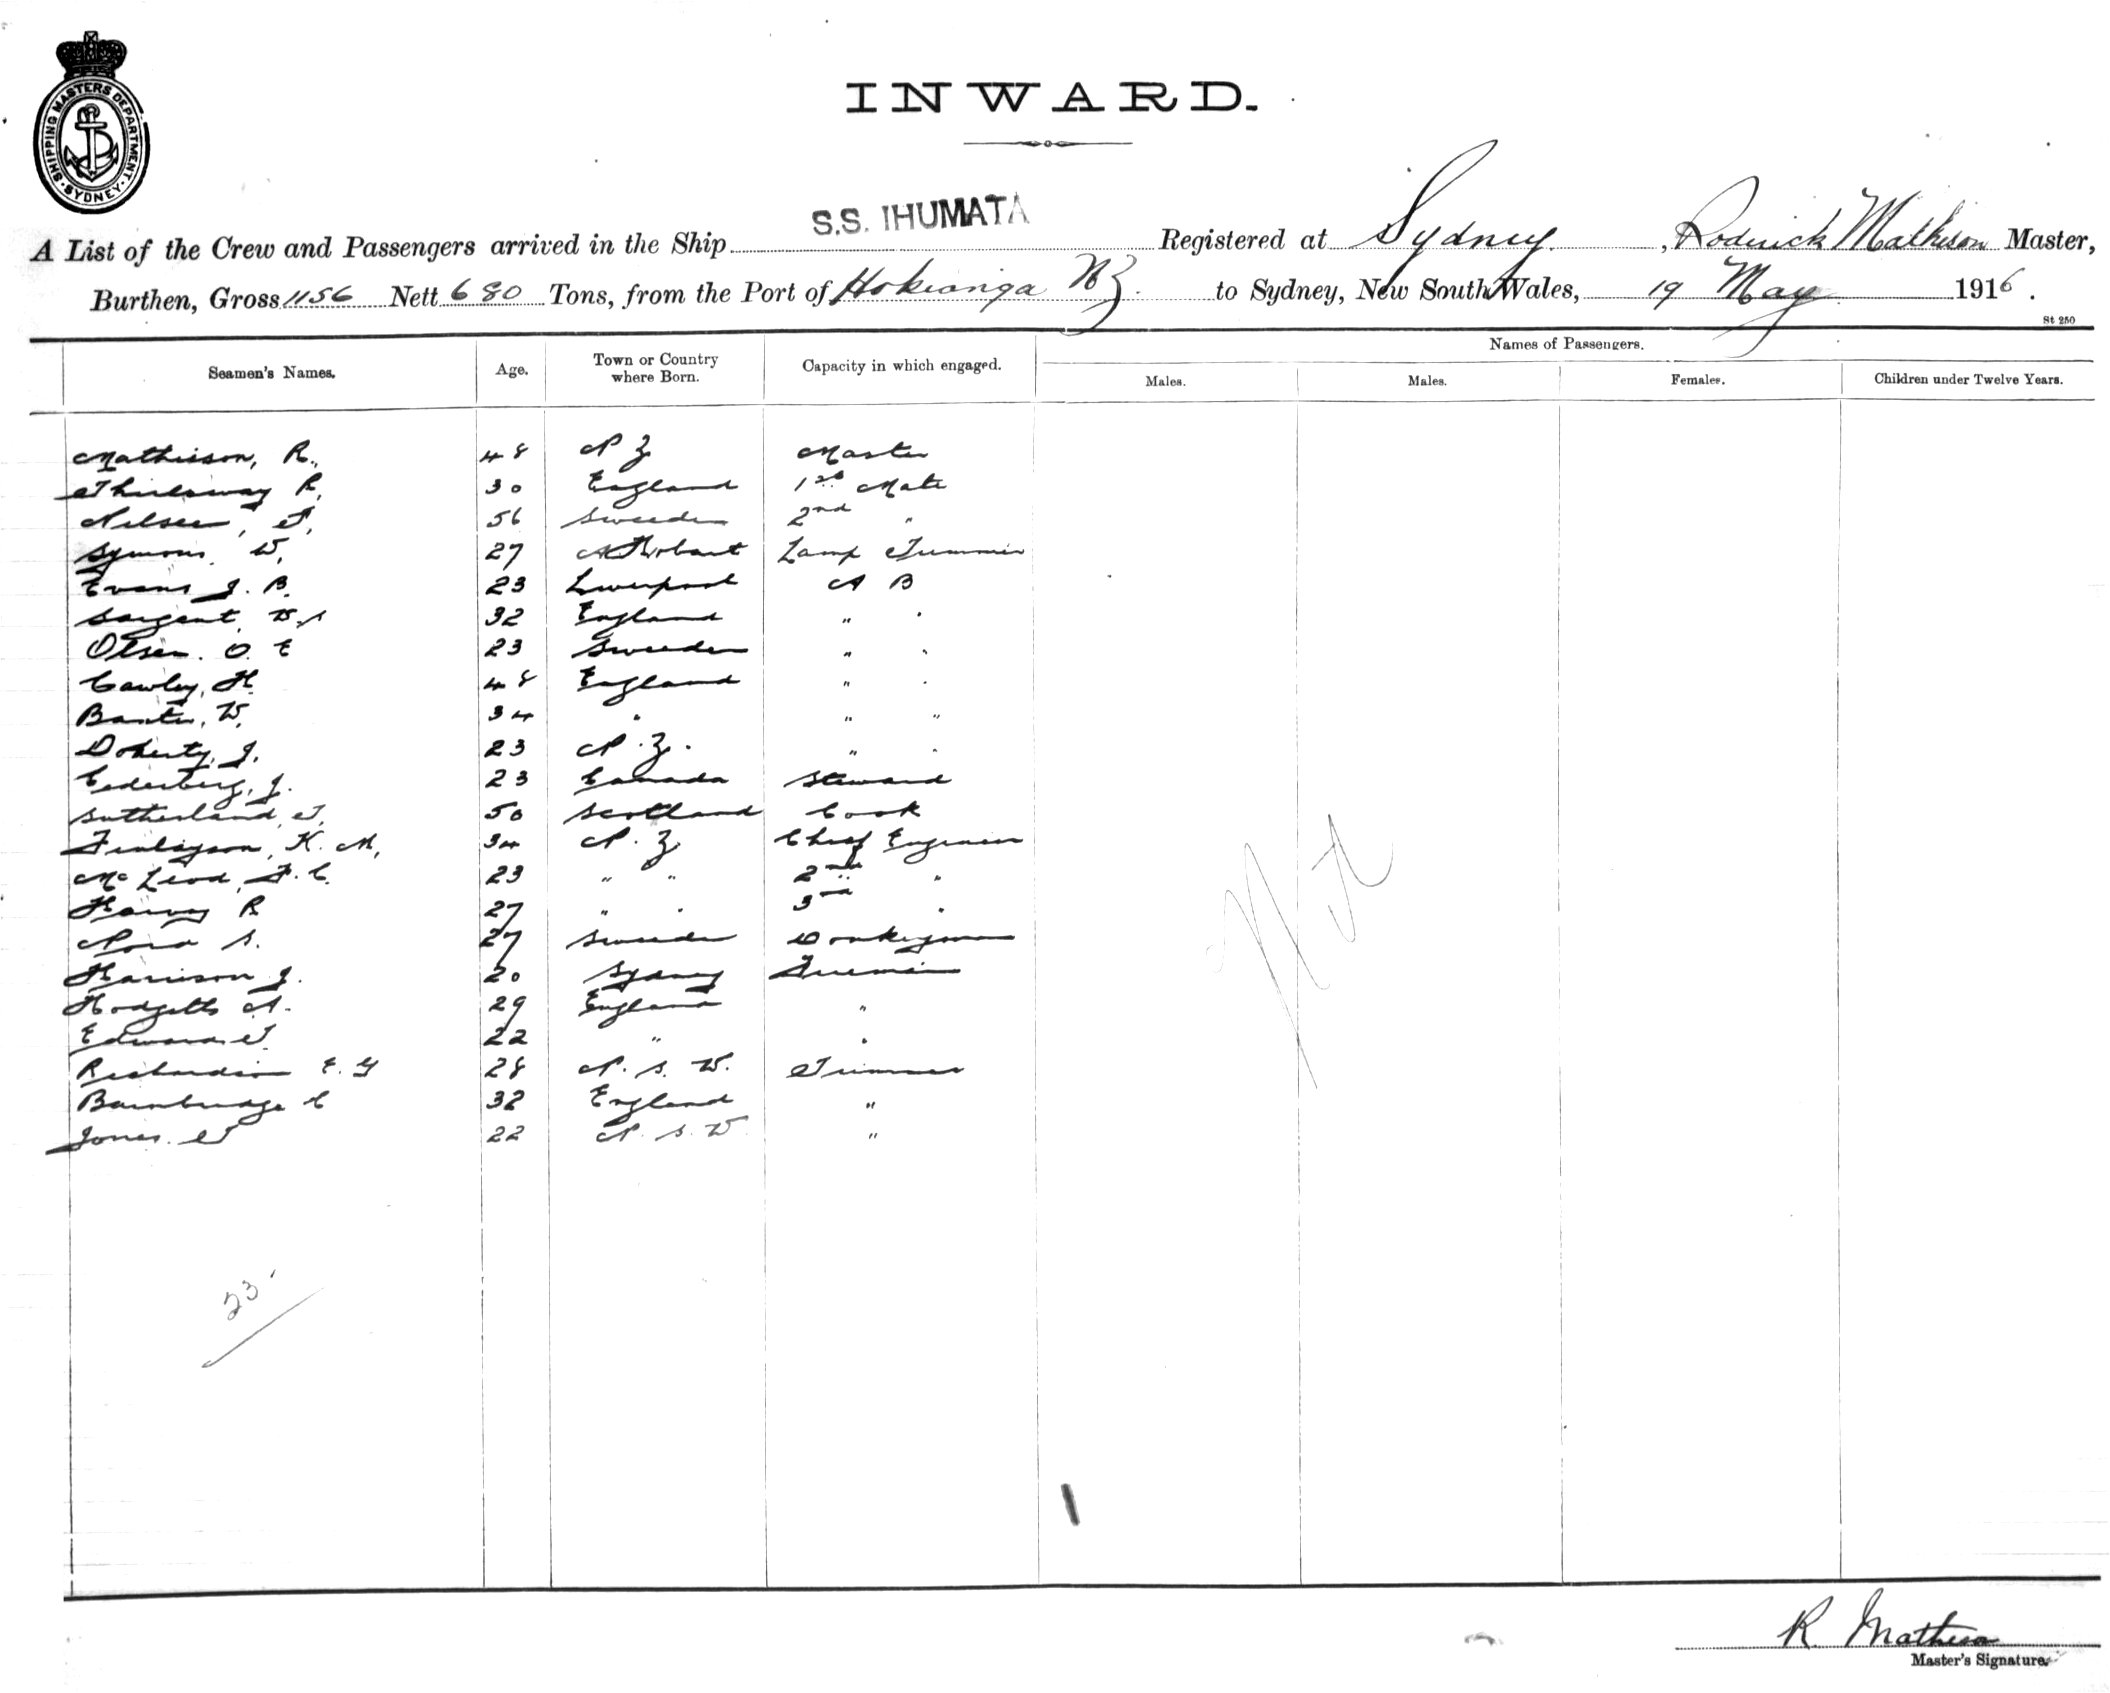 SHIPPING MASTERS DEPARTMENT
SYDNEY
INWARD.
A List of the Crew and Passengers arrived in the Ship S.S. IHUMATA Registered at Sydney, Roderick Mathieson Master,
Burthen, Gross 1156 Nett 680 Tons, from the Port of Hokianga NZ. to Sydney, New South Wales, 19 May 1916.
St 250
Seamen's Names. Age. Town or Country where Born. Capacity in which engaged. Names of Passengers.
Males. Males. Females. Children under Twelve Years.
Mathieson, R. 48 N Z Master
R. 30 England 1st Mate
Nelsen, T. 56 Sweeden 2nd "
Symons W. 27 Hobart Lamp Trimmer
Evans J. B. 23 Liverpool A B
Sargent, W. 32 England " "
Olsen. O. E 23 Sweeden " "
Cawley, H. 48 England " "
Baxter, W. 34 " " "
Doherty, J. 23 N. Z. " "
Cederberg, J. 23 Canada Steward
Sutherland, T. 50 Scotland Cook
Finlayson, K. M. 34 N. Z Chief Engineer
Mc Leod, F. C. 23 " " 2nd "
Harvey R 27 " " 3rd "
Nord S. 27 Sweeden Donkeyman
Harrison J. 20 Sydney Fireman
Hodgetts A. 29 England "
Edwards T 22 " "
Richardson E. G 28 N. S. W. Trimmer
Bainbridge C 32 England "
Jones. W 22 N. S. W. "
Not
23
R Mathieson
Master's Signature.